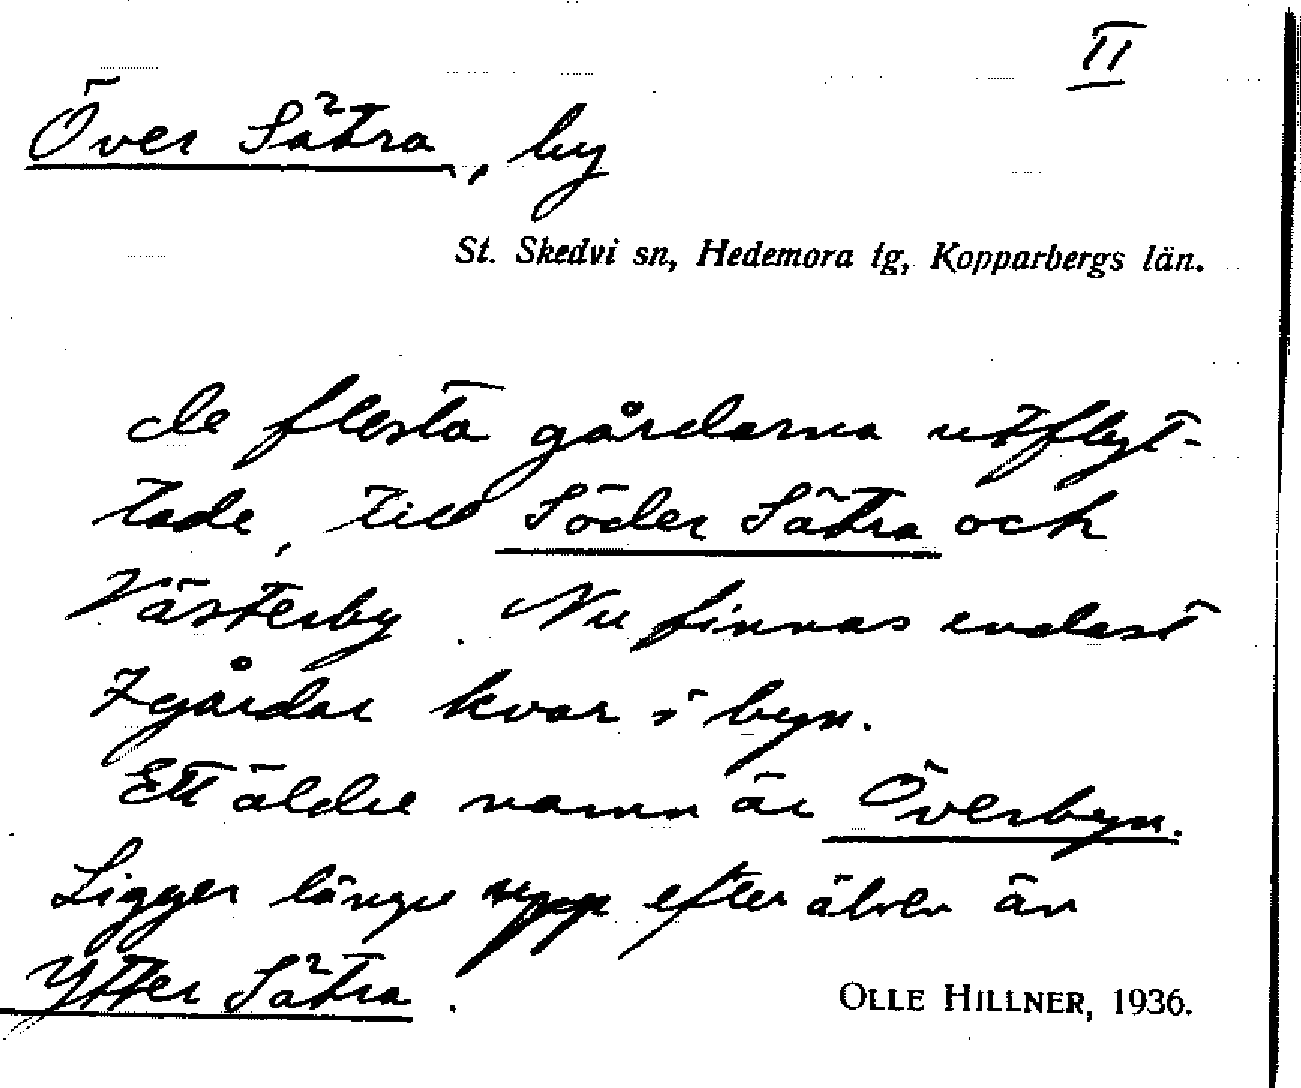 II
Över Sätra, by
St. Skedvi sn, Hedemora tg, Kopparbergs län.
de flesta gårdarna utflyt-
tade, till Söder Sätra och
Västerby. Nu finnas endast
7 gårdar kvar i byn.
Ett äldre namn är Överbyn.
Ligger längre upp efter älven än
Ytter Sätra.
OLLE HILLNER, 1936.